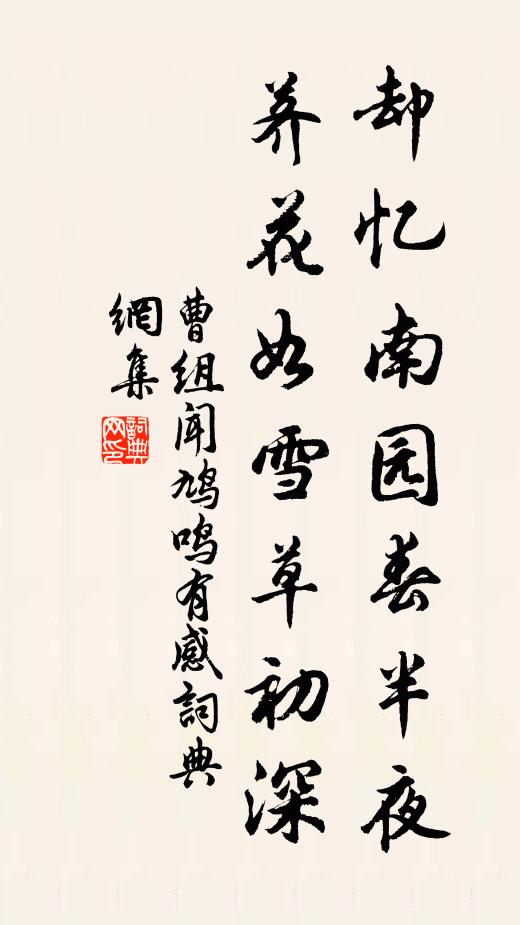 却忆南园春半夜
荠花如雪草初深
曹组闻鸠鸣有感詞典
網集
詞典
网印